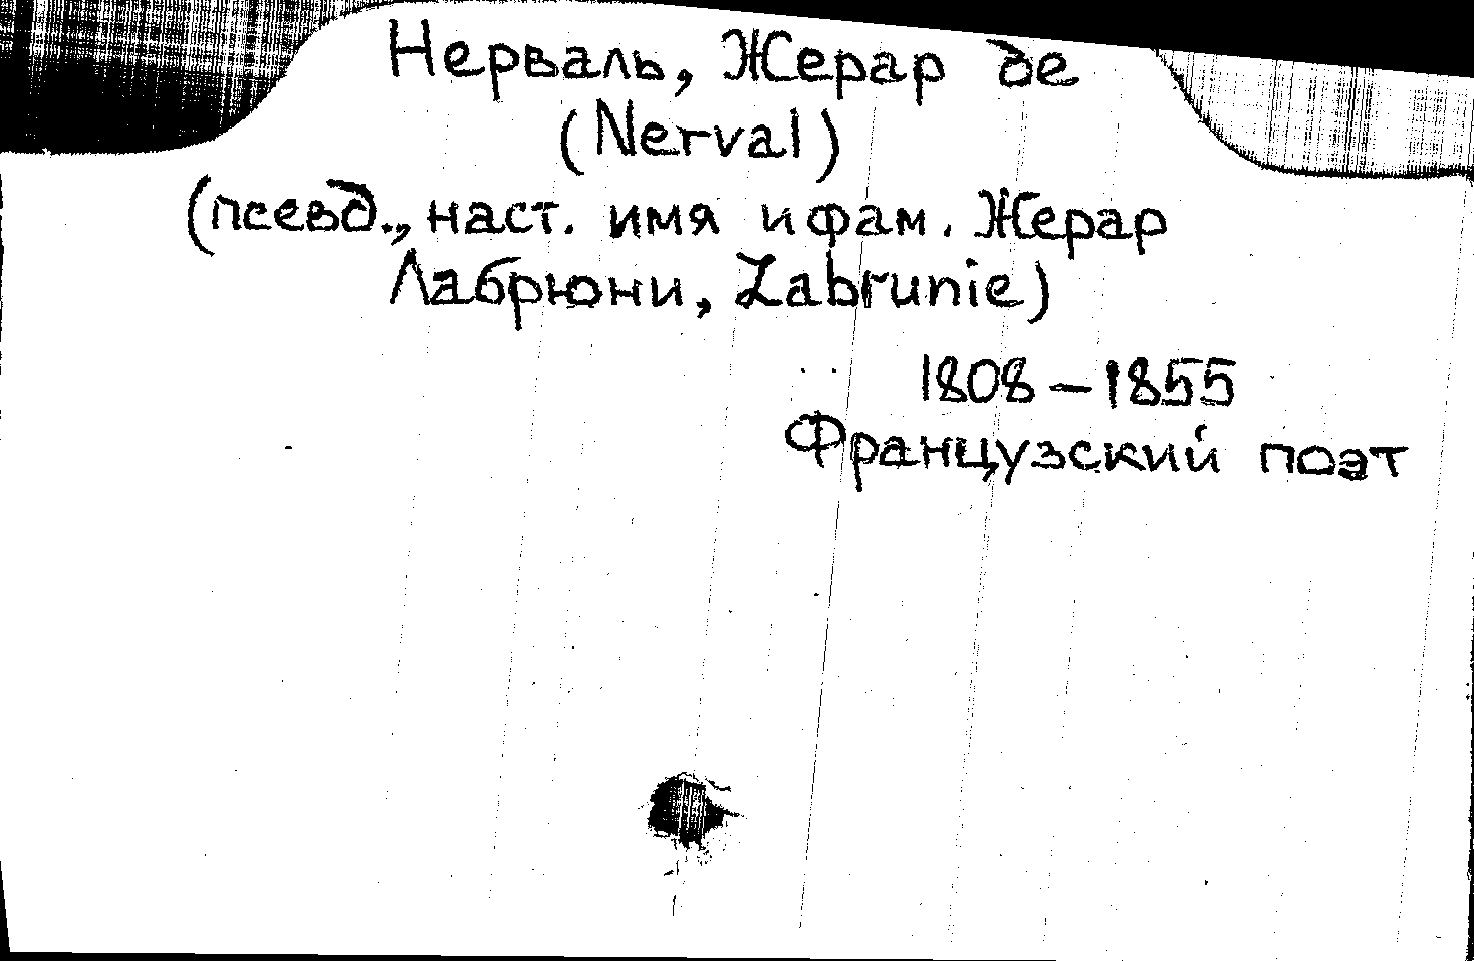 Нерваль, Жерар де
(Nerval)
(псевд., наст. имя и фам. Жерар
Лабрюни, Labrunie)
1808 – 1855
Французский поэт